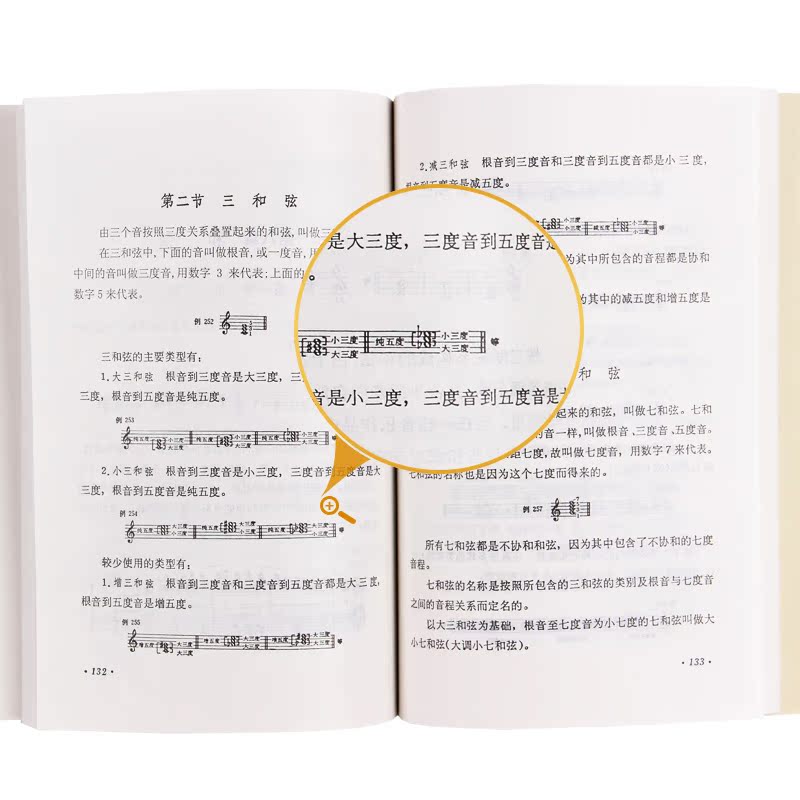 第二节 三 和 弦
由三个音按照三度关系叠置起来的和弦,叫做三
在三和弦中,下面的音叫做根音,或一度音,用
中间的音叫做三度音,用数字 3 来代表;上面的
数字5来代表。
例 252
三和弦的主要类型有:
1.大三和弦 根音到三度音是大三度,三
三度,根音到五度音是纯五度。
例 253
纯五度 小三度 大三度 纯五度 小三度 大三度 纯五度 小三度 大三度 等
2.小三和弦 根音到三度音是小三度,三度音到五度音是大
三度,根音到五度音是纯五度。
例 254
纯五度 大三度 小三度 纯五度 大三度 小三度 纯五度 大三度 小三度 等
较少使用的类型有:
1.增三和弦 根音到三度音和三度音到五度音都是大三度,
根音到五度音是增五度。
例 255
增五度 大三度 大三度 增五度 大三度 大三度 增五度 大三度 大三度 等
·132·
是大三度,三度音到五度音是
。
小三度 大三度 纯五度 小三度 大三度 等
音是小三度,三度音到五度音是大
2.减三和弦 根音到三度音和三度音到五度音都是小三度,
音到五度音是减五度。
小三度 小三度 减五度 小三度 小三度 等
为其中所包含的音程都是协和
为其中的减五度和增五度是
和 弦
起来的和弦,叫做七和弦。七和
的音一样,叫做根音、三度音、五度音。
距七度,故叫做七度音,用数字7来代表。
七和弦的名称也是因为这个七度而得来的。
例 257
所有七和弦都是不协和和弦,因为其中包含了不协和的七度
音程。
七和弦的名称是按照所包含的三和弦的类别及根音与七度音
之间的音程关系而定名的。
以大三和弦为基础,根音至七度音为小七度的七和弦叫做大
小七和弦(大调小七和弦)。
·133·